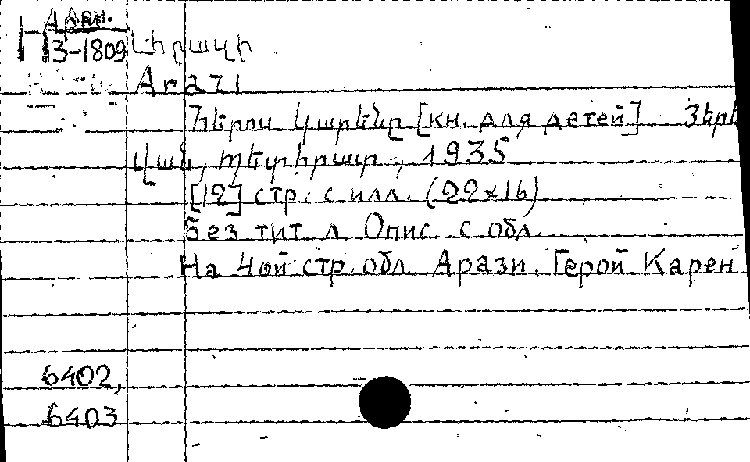 ААрм.
Н3-1809
Արազի
Arazi
Հերոս Կարենը [кн. для детей] Յերե
վան, Պետհրատ, 1935
[12] стр. с илл. (22x16)
Без тит л Опис с обл.
На 4ой стр. обл Арази. Герой Карен
6402,
6403